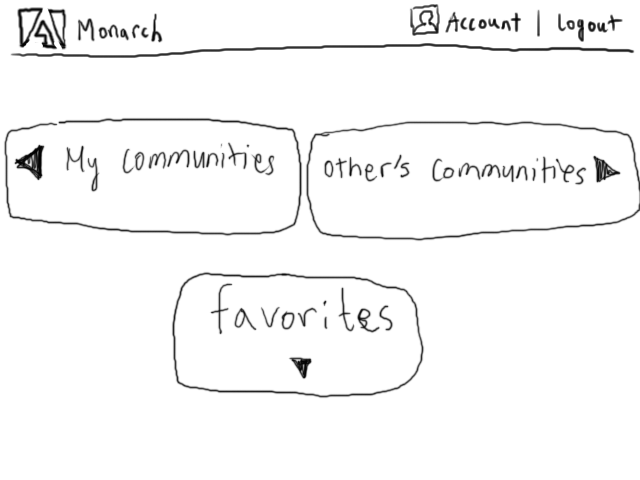 Monarch Account | Logout
My communities
other's communities
favorites